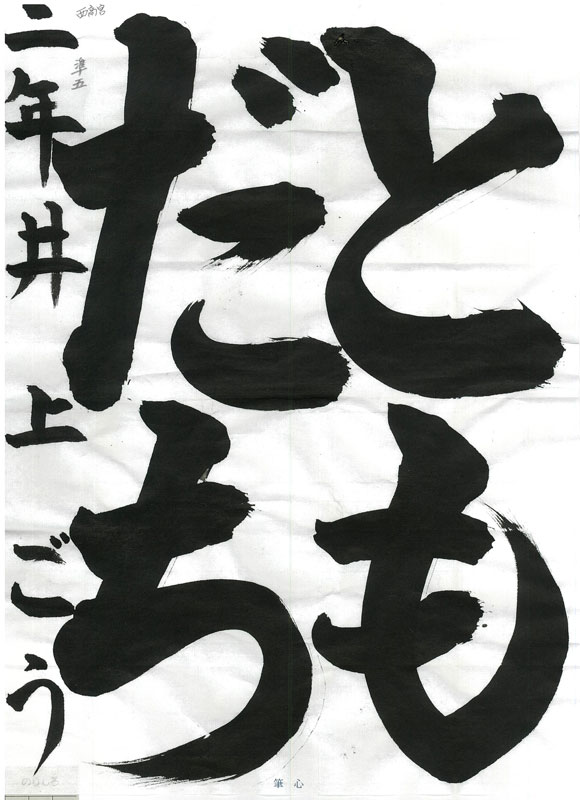 とも
だち
二年井上ごう
西高宮
準五
のりしろ
筆心